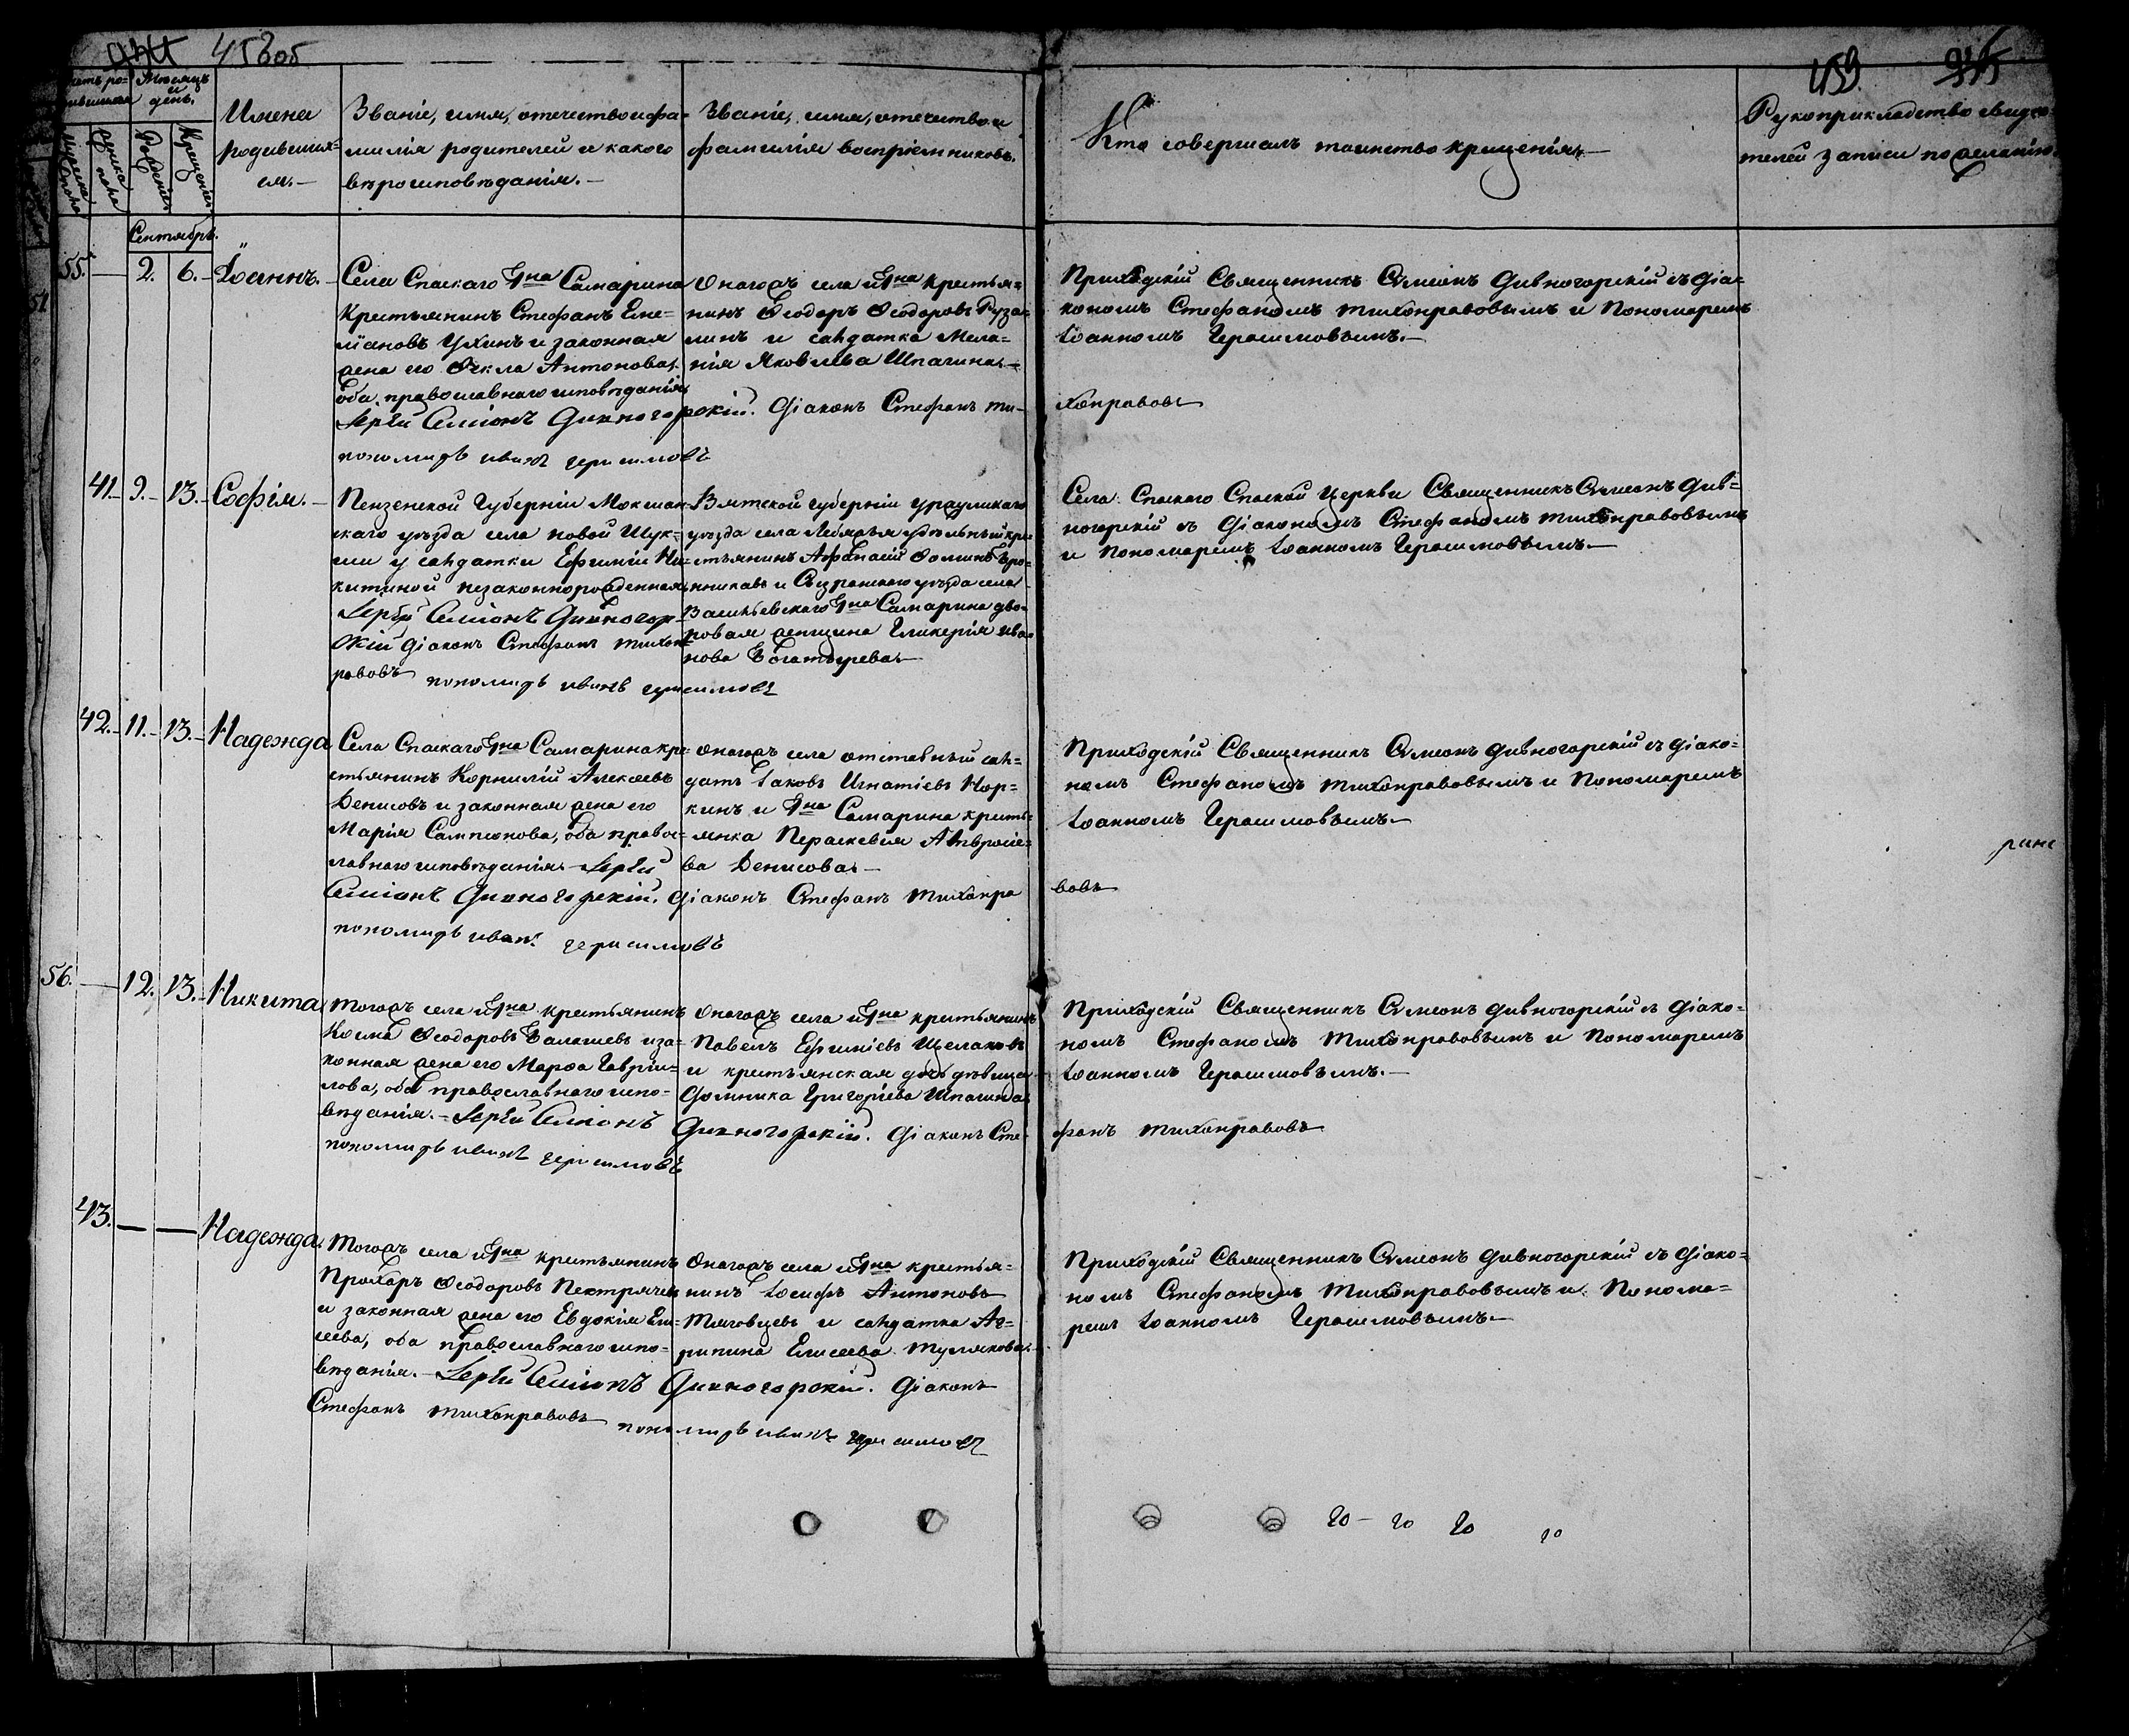 458об
459
Счетъ ро-
дившихся
Мѣсяцъ
и
день.
Мужеска
пола
Женска
пола
Рожденія
Крещенія
Имена
родивших=
ся.—
Званіе, имя, отечество и фа=
милія родителей и какого
вѣроисповѣданія.—
Званіе, имя, отечество и
фамилія воспріемниковъ.
Кто совершалъ таинство крещенія.—
Рукоприкладство свидѣ-
телей записи по желанію.
Сентябрь.
55.
— 2. 6.
Іоаннъ.—
Села Спаскаго Гна Самарина
крестьянинъ Стефанъ Еме=
ліановъ Ухинъ и законная
жена его Ѳекла Антонова,
оба православнаго исповѣданія.
Іерей Симіонъ Дивногорскій. Діаконъ Стефанъ Ти-
хонравовъ
пономарь иванъ герасимовъ
Онагожъ села и Гна крестья=
нинъ Ѳеодоръ Ѳеодоровъ Руза=
линъ и салдатка Мела=
нія Яковлева Шпагина.—
Приходскій Священникъ Сѵмеонъ Дивногорскій съ Діа=
кономъ Стефаномъ Тихонравовымъ и Пономаремъ
Іоанномъ Герасимовымъ.—
41.— 9.— 13.—
Софія.—
Пензенской Губерніи Мокшан=
скаго уѣзда села новой Шук=
ши у салдатки Ефиміи Ни=
китиной незаконнорожденная.
Іерей Симіонъ Дивногор-
скій Діаконъ Стефанъ Тихон
равовъ пономарь иванъ герасимовъ
Вятской Губерніи Уржумскаго
уѣзда села Лебяжья удѣльный кре=
стьянинъ Афанасій Ѳоминъ
и Сызранскаго уѣзда села
Васильевскаго Гна Самарина дво=
ровая женщина Гликерія Ива=
нова Богатырева.—
Села Спаскаго Спаской Церкви Священникъ Сѵмеонъ Див=
ногорскій съ Діакономъ Стефаномъ Тихонравовымъ
и Пономаремъ Іоанномъ Герасимовымъ.—
42.— 11.— 13.—
Надежда
Села Спаскаго Гна Самарина кре=
стьянинъ Корнилій Алексѣевъ
Денисовъ и законная жена его
Марія Сампсонова, оба право=
славнаго исповѣданія.— Іерей
Симіонъ Дивногорскій. Діаконъ Стефанъ Тихонра
вовъ
пономарь иванъ герасимовъ
Онагожъ села отставный сал=
датъ Іаковъ Игнатіевъ Нор=
кинъ и Гна Самарина кресть=
янка Параскевія Амвросіе=
ва Денисова.—
Приходскій Священникъ Сѵмеонъ Дивногорскій съ Діако=
номъ Стефаномъ Тихонравовымъ и Пономаремъ
Іоанномъ Герасимовымъ.—
56. — 12. 13.—
Никита
Тогожъ села и Гна крестьянинъ
Косма Ѳеодоровъ Балашевъ и за=
конная жена его Марѳа Гаврі=
лова, оба православнаго испо=
вѣданія.— Іерей Симіонъ Дивногорскій. Діаконъ Сте
фанъ Тихонравовъ
пономарь иванъ герасимовъ
Онагожъ села и Гна крестьянинъ
Павелъ Ефиміевъ Щелаковъ
и крестьянская дочь дѣвица
Домника Григоріева Шпагина.
Приходскій Священникъ Сѵмеонъ Дивногорскій съ Діако=
номъ Стефаномъ Тихонравовымъ и Пономаремъ
Іоанномъ Герасимовымъ.—
43. — —
Надежда.
Тогожъ села и Гна крестьянинъ
Прохоръ Ѳеодоровъ Пехтрячевъ
и законная жена его Евдокія Ели=
сеева, оба православнаго испо=
вѣданія.— Іерей Симіонъ Дивногорскій. Діаконъ
Стефанъ Тихонравовъ пономарь иванъ герасимовъ
Онагожъ села и Гна крестья=
нинъ Іосифъ Антоновъ
Тяговцевъ и салдатка Аг=
рипина Елисеева Тулякова.
Приходскій Священникъ Сѵмеонъ Дивногорскій съ Діако=
номъ Стефаномъ Тихонравовымъ и Понома=
ремъ Іоанномъ Герасимовымъ.—